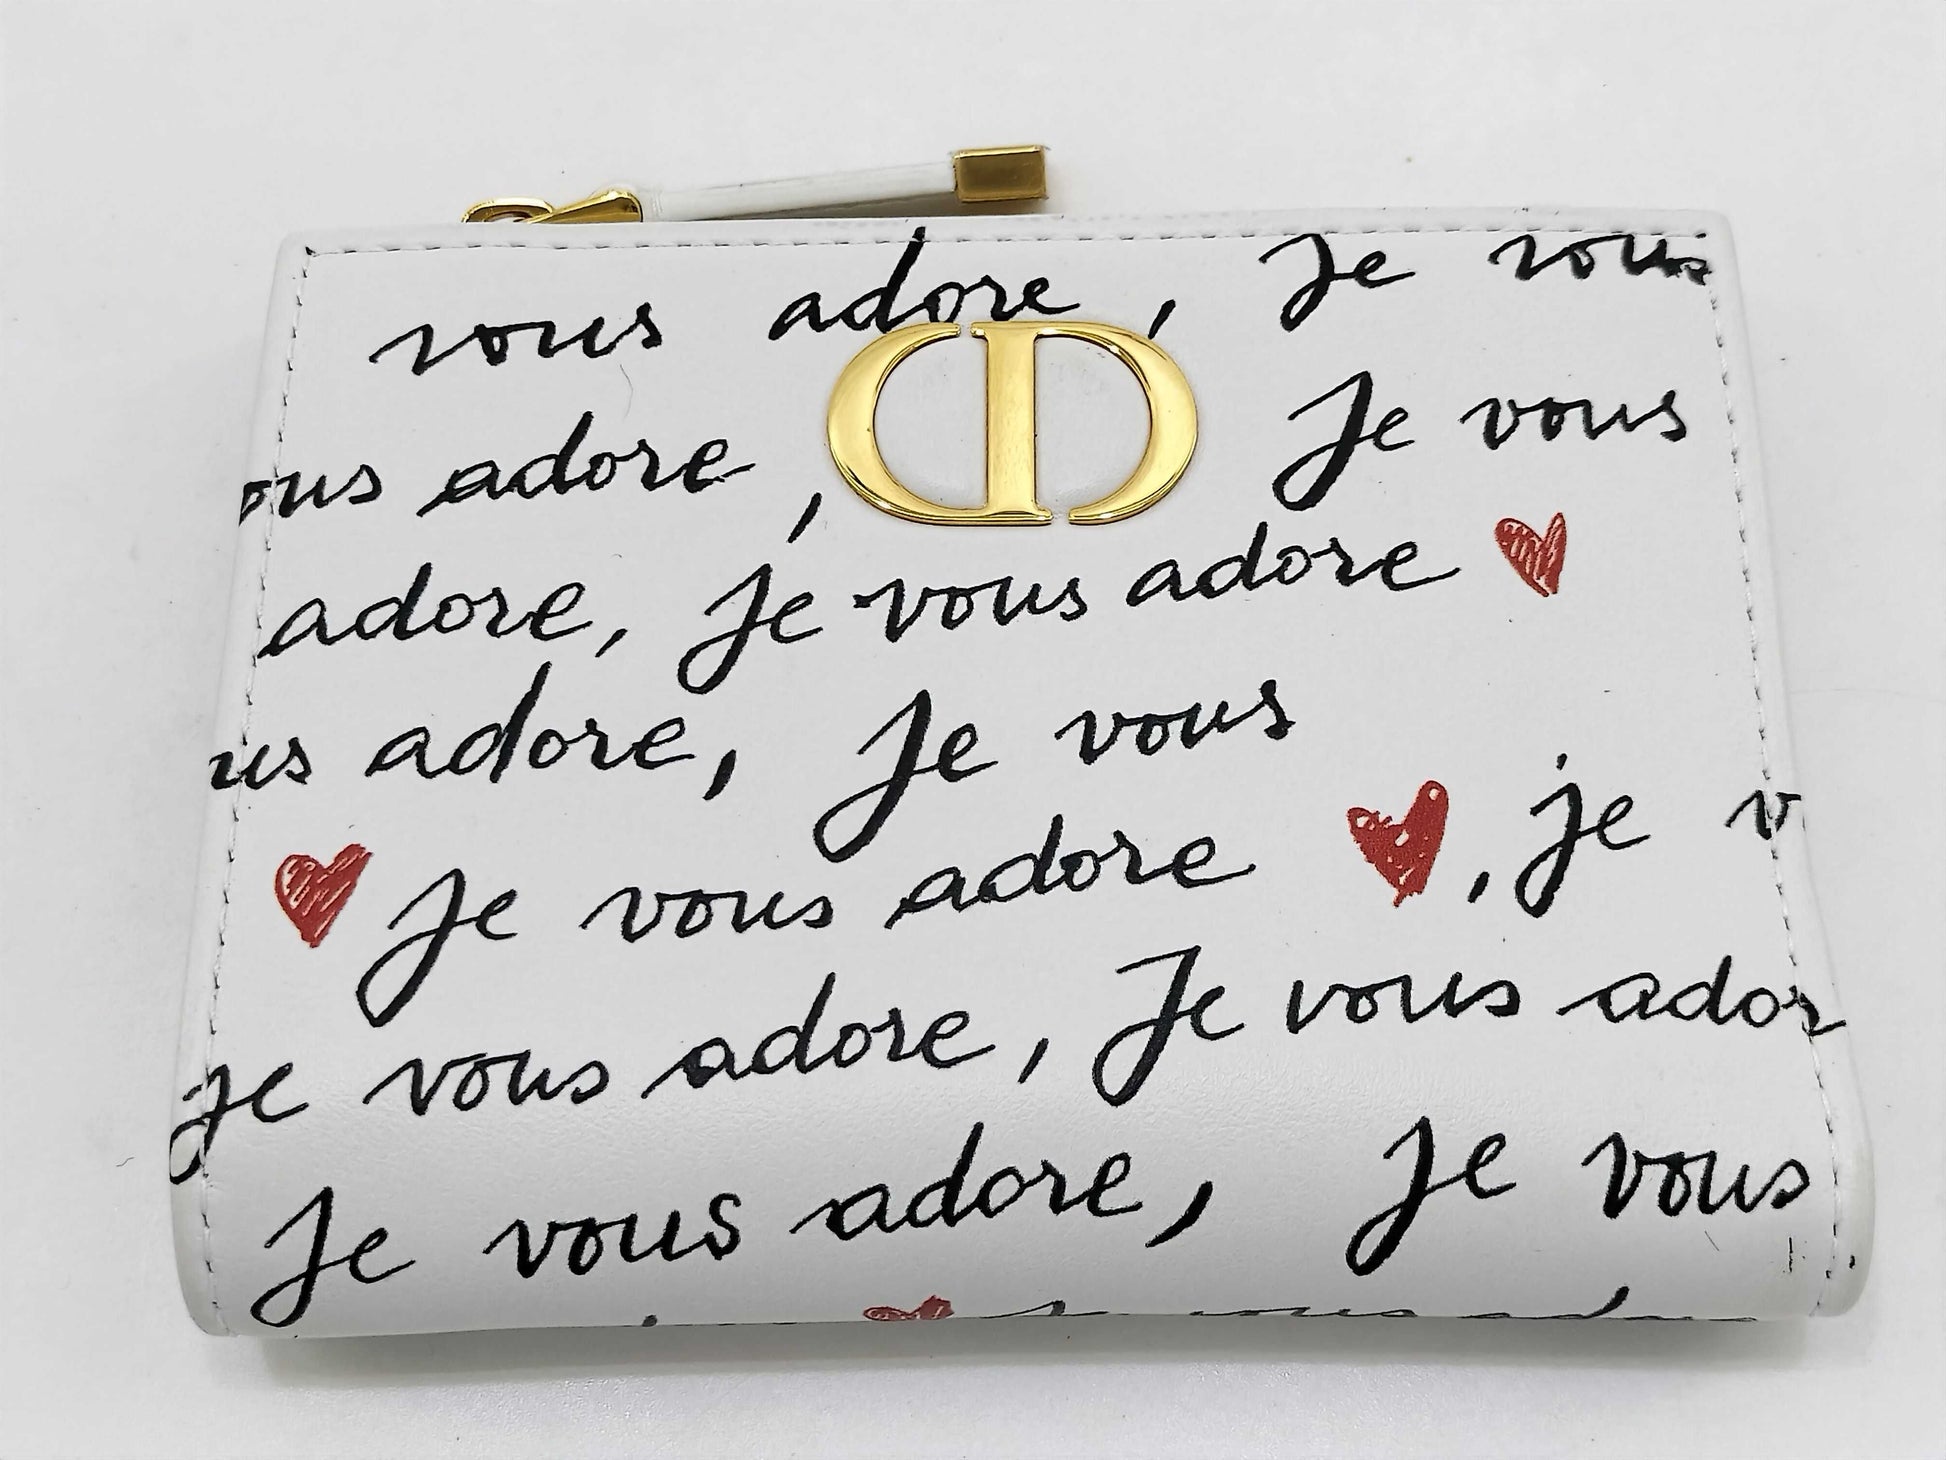 vous adore, Je vous
CD
ous adore, Je vous
adore, Je vous adore
us adore, Je vous
Je vous adore, je v
je vous adore, Je vous ador
Je vous adore, Je vous
Je vous adore